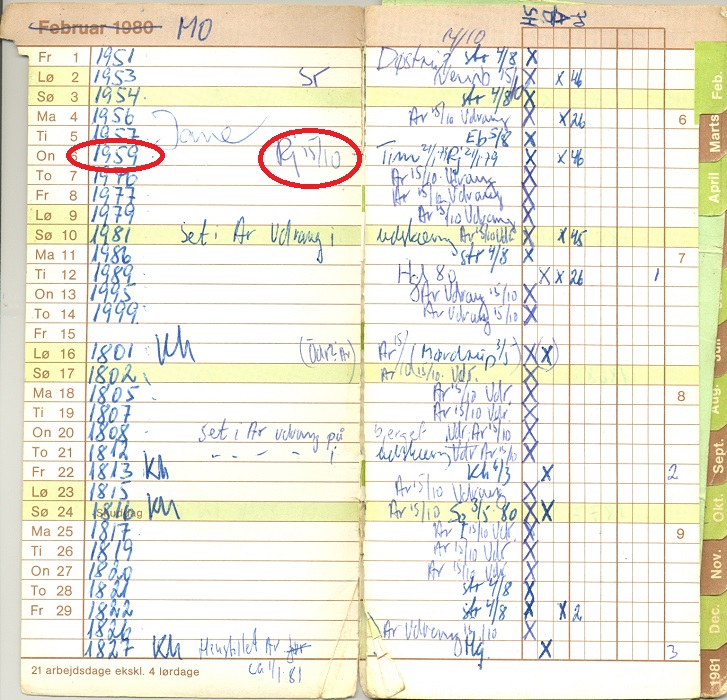 Februar 1980 MO 14/10 SH
Fr 1 1951 str 4/8 X
Lø 2 1953 Sr 15/10 X X 46
Sø 3 1954 str 4/8 X
Ma 4 1956 Ar 15/10 Udrang X X 26 6
Ti 5 1957 Jane Eb 5/8 X
On 6 1959 Rj 15/10 X X 46
To 7 1976 Ar 15/10 Udrang X
Fr 8 1977 Ar 15/10 Udrang X
Lø 9 1979 Ar 15/10 Udrang X
Sø 10 1981 set i Ar Udrang i udskæring Ar X X 45
Ma 11 1986 str 4/8 X 7
Ti 12 1989 80 X X 26 1
On 13 1995 Ar Udrang 15/10 X
To 14 1999 Ar Udrang 15/10 X
Fr 15
Lø 16 1801 Kh Ar 15/ (Mårdrup 3/5) X (X)
Sø 17 1802 Ar 15/10 Vdr. X
Ma 18 1805 Ar 15/10 Vdr. X 8
Ti 19 1807 Ar 15/10 Vdr. X
On 20 1808 set i Ar udrang på bjerget Vdr. Ar 15/10 X
To 21 1812 - - - - i udskæring Vdr Ar 15/10 X
Fr 22 1813 Kh Kh 4/3 X 2
Lø 23 1815 Ar 15/10 Udrang X
Sø 24 Skuddag 1816 Kh Ar 15/10 3/5 80 X X
Ma 25 1817 Ar 15/10 Vdr. X 9
Ti 26 1819 Ar 15/10 Vdr. X
On 27 1820 Ar 15/10 Vdr. X
To 28 1821 str 4/8 X
Fr 29 1822 str 4/8 X X 2
1826 Ar Udrang 15/10 X
1827 Kh Ar Hg. X 3
21 arbejdsdage ekskl. 4 lørdage ca 1/1-81
Feb.
Marts
April
Juli
Aug.
Sept.
Okt.
Nov.
Dec.
1981